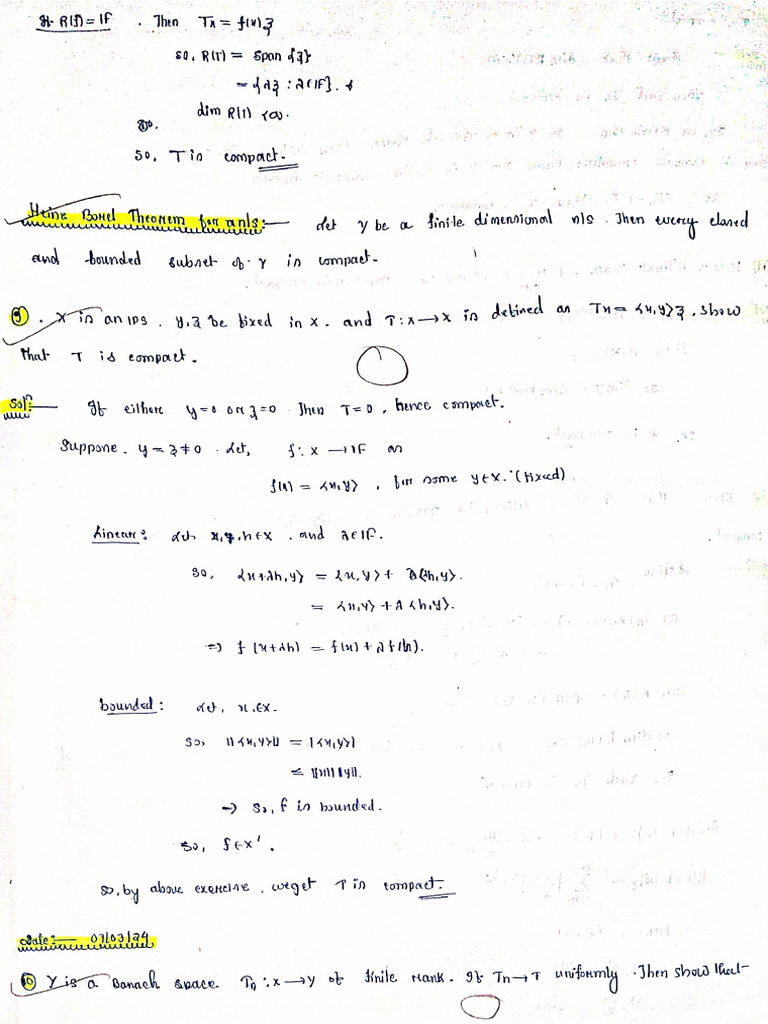 If R(f) = IF . Then Tx = f(x)z
so, R(T) = span {z}
= {λz : λ∈IF}.
dim R(T) < ∞.
So, T is compact.
Heine Borel Theorem for a nls :— Let Y be a finite dimensional nls. Then every closed
and bounded subset of Y is compact.
9. X is an IPS. y,z be fixed in X. and T: X → X is defined as Tx = <x,y>z, show
that T is compact.
Sol :— If either y=0 or z=0 . Then T=0, hence compact.
Suppone. y = z ≠ 0 . Let, f: X → IF as
f(x) = <x,y> , for some y∈X. (fixed).
Linear: Let x, h ∈ X . and λ∈IF.
So, <x+λh,y> = <x,y> + λ<h,y>.
= <x,y> + λ <h,y>.
⇒ f(x+λh) = f(x)+λf(h).
bounded: Let, x∈X.
So, ||<x,y>|| = |<x,y>|
≤ ||x|| ||y||.
→ So, f is bounded.
So, f∈X'.
So, by above exercise, we get T is compact.
Date:— 07/03/24
10 Y is a Banach space Tn : X → Y of finite rank. If Tn → T uniformly . Then show that—